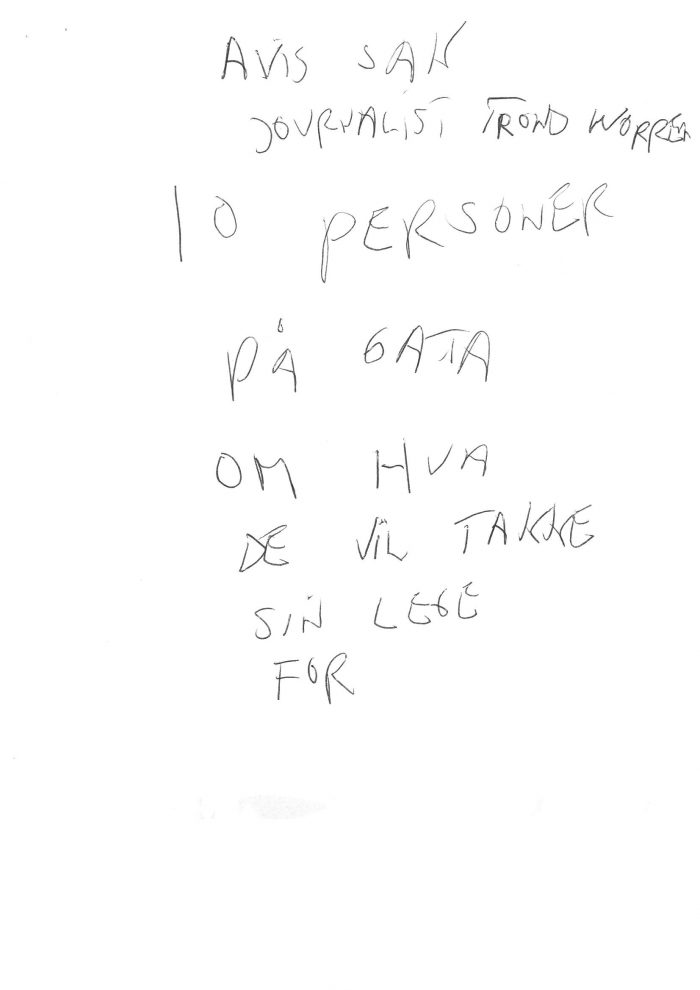 AVIS SAK
JOURNALIST TROND WORREN
10 PERSONER
PÅ GATA
OM HVA
DE VIL TAKKE
SIN LEGE
FOR